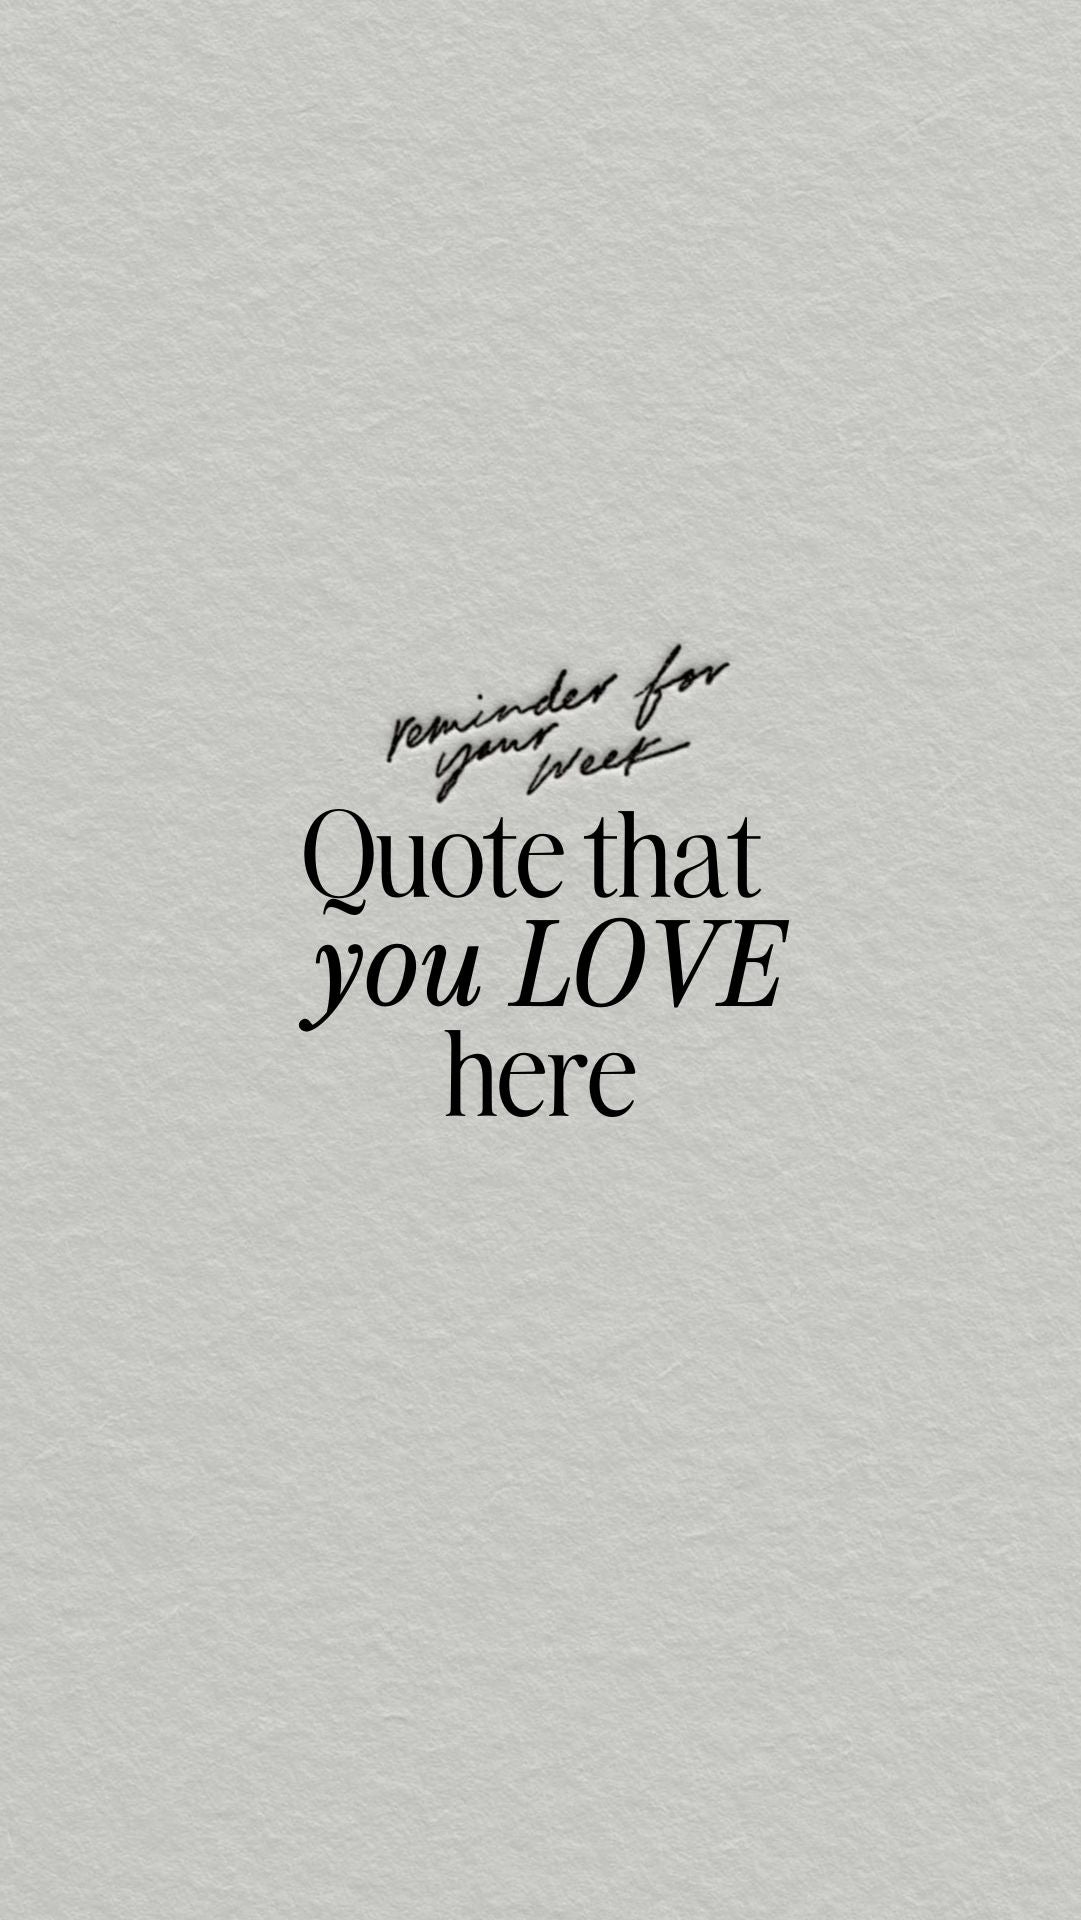 reminder for
your week
Quote that
you LOVE
here